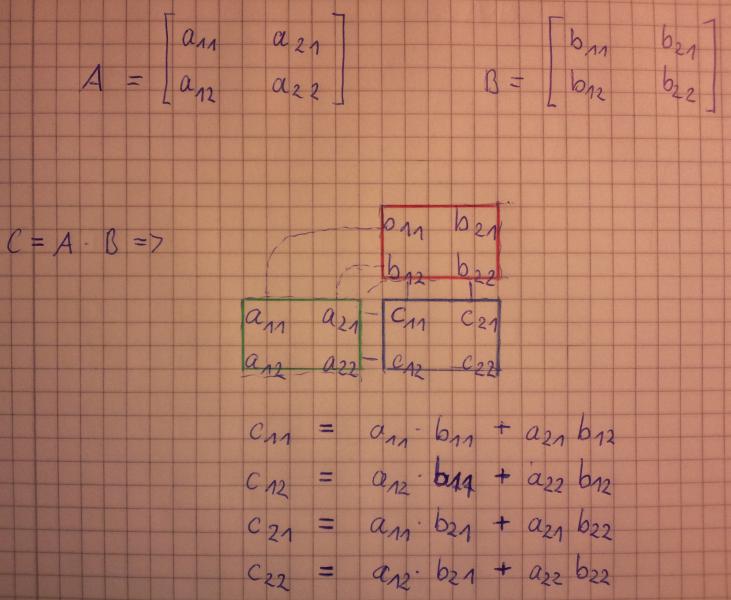 A = [a₁₁ a₂₁] B = [b₁₁ b₂₁]
[a₁₂ a₂₂] [b₁₂ b₂₂]
b₁₁ b₂₁
C = A · B =>
b₁₂ b₂₂
a₁₁ a₂₁ c₁₁ c₂₁
a₁₂ a₂₂ c₁₂ c₂₂
c₁₁ = a₁₁ · b₁₁ + a₂₁ b₁₂
c₁₂ = a₁₂ · b₁₁ + a₂₂ b₁₂
c₂₁ = a₁₁ · b₂₁ + a₂₁ b₂₂
c₂₂ = a₁₂ · b₂₁ + a₂₂ b₂₂